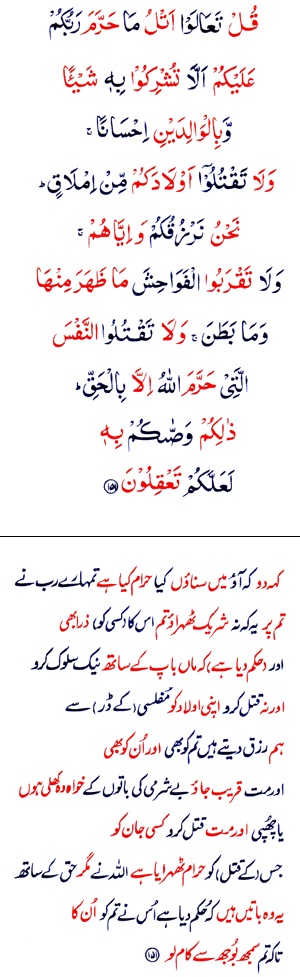 قُلْ تَعَالَوْا اَتْلُ مَا حَرَّمَ رَبُّكُمْ
عَلَيْكُمْ اَلَّا تُشْرِكُوْا بِهٖ شَيْـًٔا
وَّبِالْوَالِدَيْنِ اِحْسَانًا ۚ
وَلَا تَقْتُلُوْٓا اَوْلَادَكُمْ مِّنْ اِمْلَاقٍ ؕ
نَحْنُ نَرْزُقُكُمْ وَ اِيَّاهُمْ ۚ
وَلَا تَقْرَبُوا الْفَوَاحِشَ مَا ظَهَرَ مِنْهَا
وَمَا بَطَنَ ۚ وَلَا تَقْتُلُوا النَّفْسَ
الَّتِىْ حَرَّمَ اللّٰهُ اِلَّا بِالْحَقِّ ؕ
ذٰلِكُمْ وَصّٰكُمْ بِهٖ
لَعَلَّكُمْ تَعْقِلُوْنَ ﴿۱۵۱﴾
کہہ دو کہ آؤ میں سناؤں کیا حرام کیا ہے تمہارے رب نے
تم پر یہ کہ نہ شریک ٹھہراؤ تم اس کا (کسی کو) ذرا بھی
اور (حکم دیا ہے) کہ ماں باپ کے ساتھ نیک سلوک کرو
اور نہ قتل کرو اپنی اولاد کو مفلسی (کے ڈر) سے
ہم رزق دیتے ہیں تم کو بھی اور اُن کو بھی
اور مت قریب جاؤ بے شرمی کی باتوں کے خواہ وہ کھلی ہوں
یا چھپی اور مت قتل کرو کسی جان کو
جس (کے قتل) کو حرام ٹھہرایا ہے اللہ نے مگر حق کے ساتھ
یہ وہ باتیں ہیں کہ حکم دیا ہے اُس نے تم کو اُن کا
تاکہ تم سمجھ بُوجھ سے کام لو ﴿۱۵۱﴾